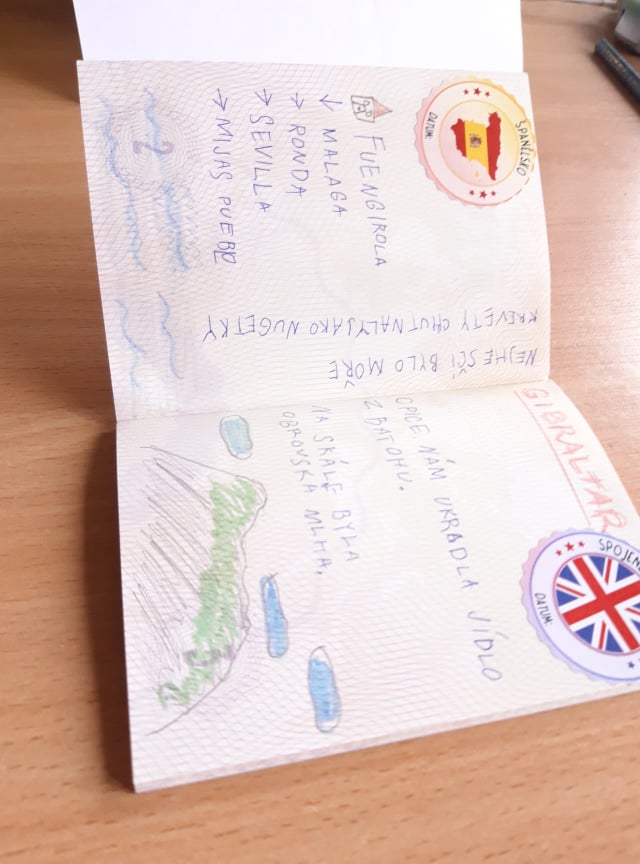 ŠPANĚLSKO
DATUM:
FUENGIROLA
↓ MALAGA
→ RONDA
→ SEVILLA
→ MIJAS PUEBLO
NEJHEZČÍ BYLO MOŘE
KREVETY CHUTNALY JAKO NUGETKY
2
GIBRALTAR
SPOJENÉ
DATUM:
OPICE NÁM UKRADLA JÍDLO
Z BATOHU.
NA SKÁLE BYLA
OBROVSKA MLHA.